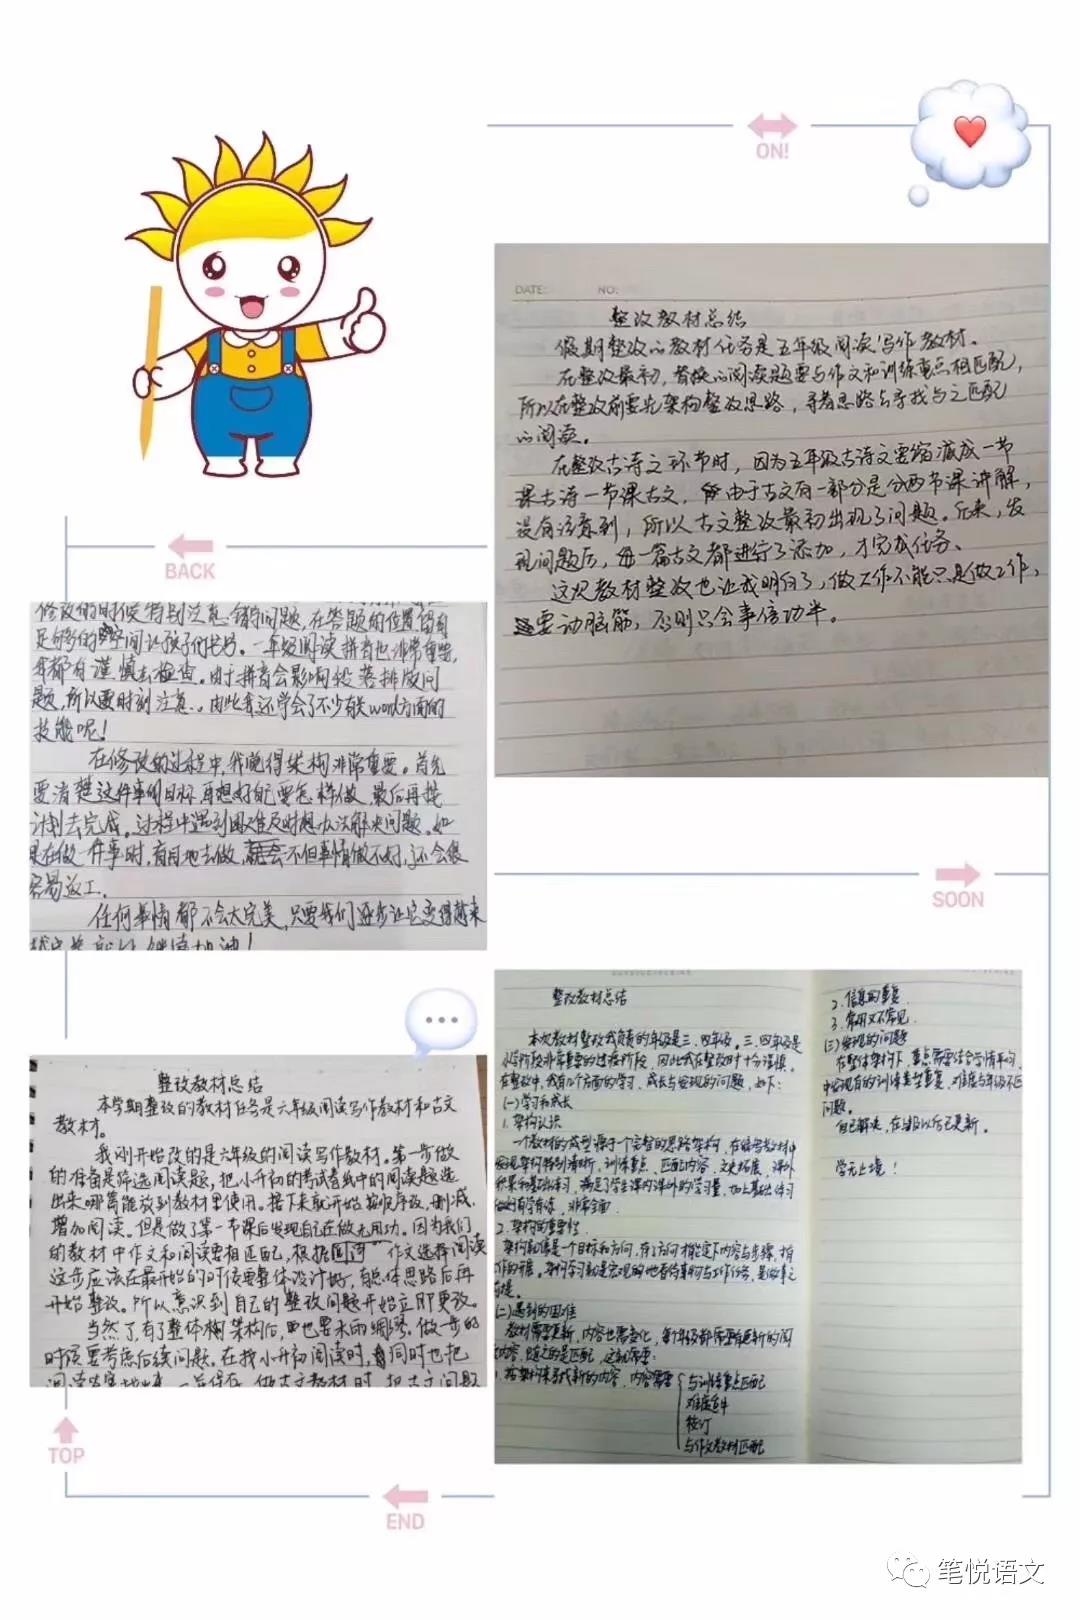 ON!
DATE:
NO:
整改教材总结
假期整改的教材任务是五年级阅读写作教材。
在整改最初，替换的阅读题要与作文和训练重点相匹配，
所以在整改前要先架构整改思路，寻着思路去寻找与之匹配
的阅读。
在整改古诗文环节时，因为五年级古诗文要缩减成一节
课古诗一节课古文，由于古文有一部分是分两节课讲解，
没有注意到，所以古文整改最初出现了问题。后来，发
现问题后，每一篇古文都进行了添加，才完成任务。
这次教材整改也让我明白了，做工作不能只是做工作，
要动脑筋，否则只会事倍功半。
BACK
修改的时候特别注意错行问题，在答题的位置留有
足够多的空间让孩子们书写。一年级阅读拼音也非常重要，
都有谨慎去检查。由于拼音会影响段落排版问
题，所以要时刻注意。由此我还学会了不少有关word方面的
技能呢！
在修改的过程中，我觉得架构非常重要。首先
要清楚这件事的目标，再想好自己要怎样做，最后再按
计划去完成。过程中遇到困难及时想办法解决问题。如
果在做一件事时，盲目地去做，就会不但事情做不好，还会很
容易返工。
任何事情都不会太完美，只要我们逐步让它变得越来
SOON
整改教材总结
本学期整改的教材任务是六年级阅读写作教材和古文
教材。
我刚开始改的是六年级的阅读写作教材。第一步做
的准备是筛选阅读题，把小升初的考试卷纸中的阅读题选
出来哪篇能放到教材里使用。接下来就开始按顺序改，删减，
增加阅读。但是做了第一节课后发现自己在做无用功。因为我们
的教材中作文和阅读要相匹配，根据 作文选择阅读
这步应该在最开始的时候要整体设计好，有总体思路后再
开始整改。所以意识到自己的整改问题开始立即更改。
当然了，有了整体架构后，也要未雨绸缪。做一步的
时候要考虑后续问题。在找小升初阅读时，同时也把
整改教材总结
本次教材整改我负责的年级是三、四年级。三、四年级是
小学阶段非常重要的过渡阶段，因此我在整改时十分谨慎。
在整改中，我有几个方面的学习、成长与发现的问题，如下：
(一)学习和成长
1.架构认识
一个教材的成型源于一个完整的思路架构，在编写教材中
发现架构特别清晰，训练重点、匹配内容、文史拓展、课外
积累和基础练习，满足了学生课内课外的学习量，加上基础练习
做到有学有练，非常全面。
2.架构的重要性
架构就像是一个目标和方向，有了方向才能定下内容与步骤，
(二)遇到的困难
教材需要更新，内容也需变化，每个年级都需要有更新的阅
读内容，随之的是匹配，这就需要：
1.按架构来寻找新的内容，内容需要
与训练重点匹配
难度适中
校订
与作文教材匹配
2.信息的重复
3.常用又不常见
(三)发现的问题
在整体架构下，重点需要结合学情
中发现有的训练类型重复，难度与年级不匹
问题。
自己解决，在升级以后已更新。
学无止境！
TOP
END
笔悦语文